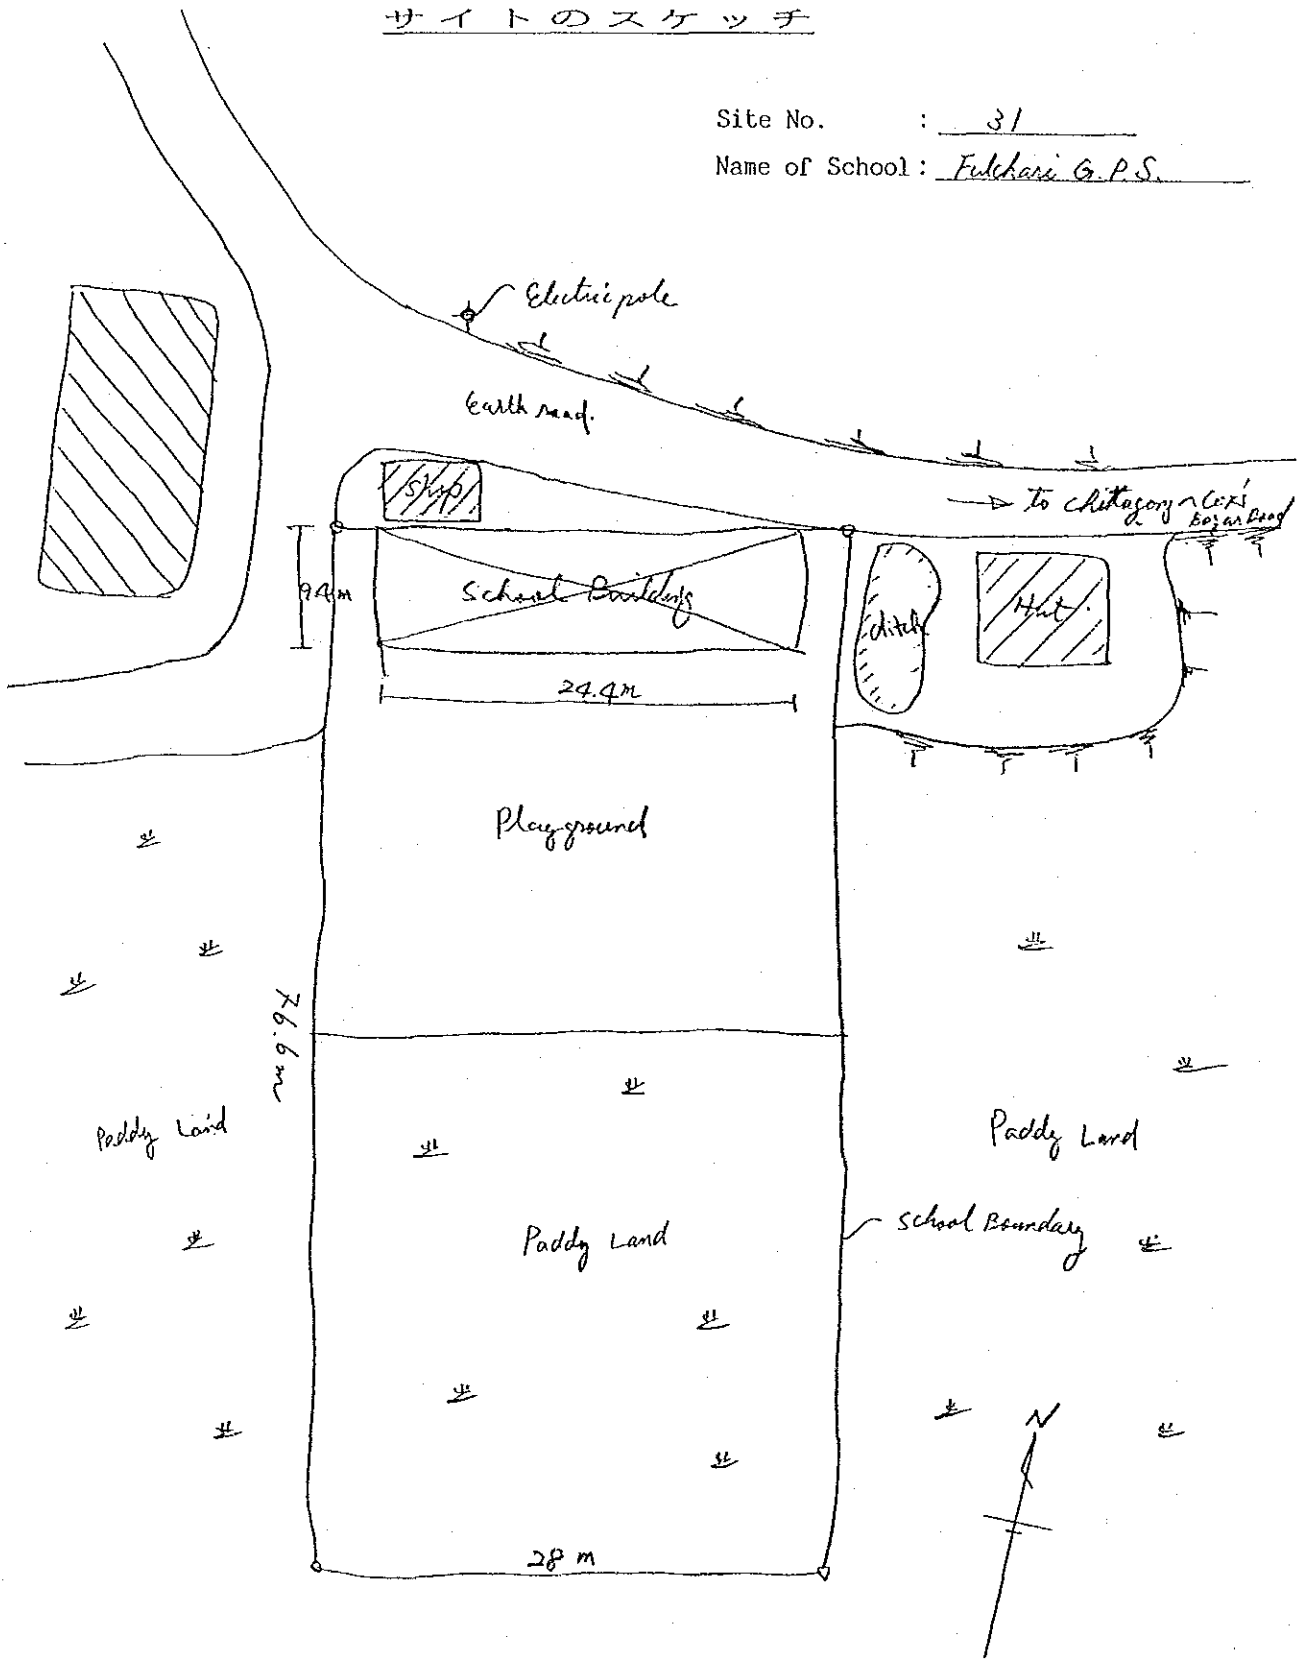 サイトのスケッチ
Site No. : 31
Name of School : Fulchari G.P.S.
Electric pole
Earth road.
Shop
→ to chittagong ~ Cox's
Bazar Road
School Building
94 m
ditch
Hut.
24.4m
Playground
76.6 m
Paddy Land
Paddy Land
School Boundary
Paddy Land
N
28 m